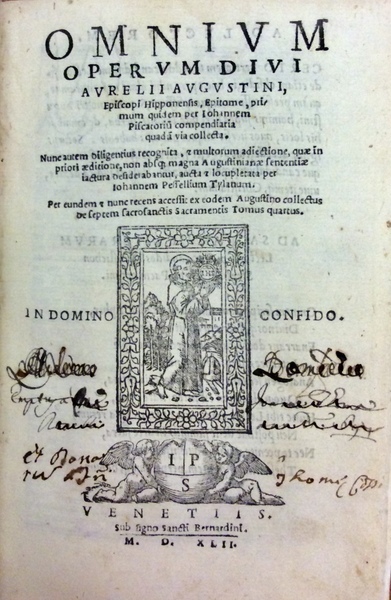 OMNIVM
OPERVM DIVI
AVRELII AVGVSTINI,
Episcopi Hipponensis, Epitome, pri-
mum quidem per Iohannem
Piscatoriũ compendiaria
quadã via collecta.
Nunc autem diligentius recognita, & multorum adiectione, quæ in
priori æditione, non absq; magna Augustinianæ sententiæ
iactura desiderabantur, aucta & locupletata per
Iohannem Pessellium Tylanum.
Per eundem & nunc recens accessit: ex eodem Augustino collectus
de septem sacrosanctis Sacramentis Tomus quartus.
IN DOMINO CONFIDO.
et Bona
Thomę
I P
S
VENETIIS.
Sub signo Sancti Bernardini.
M. D. XLII.